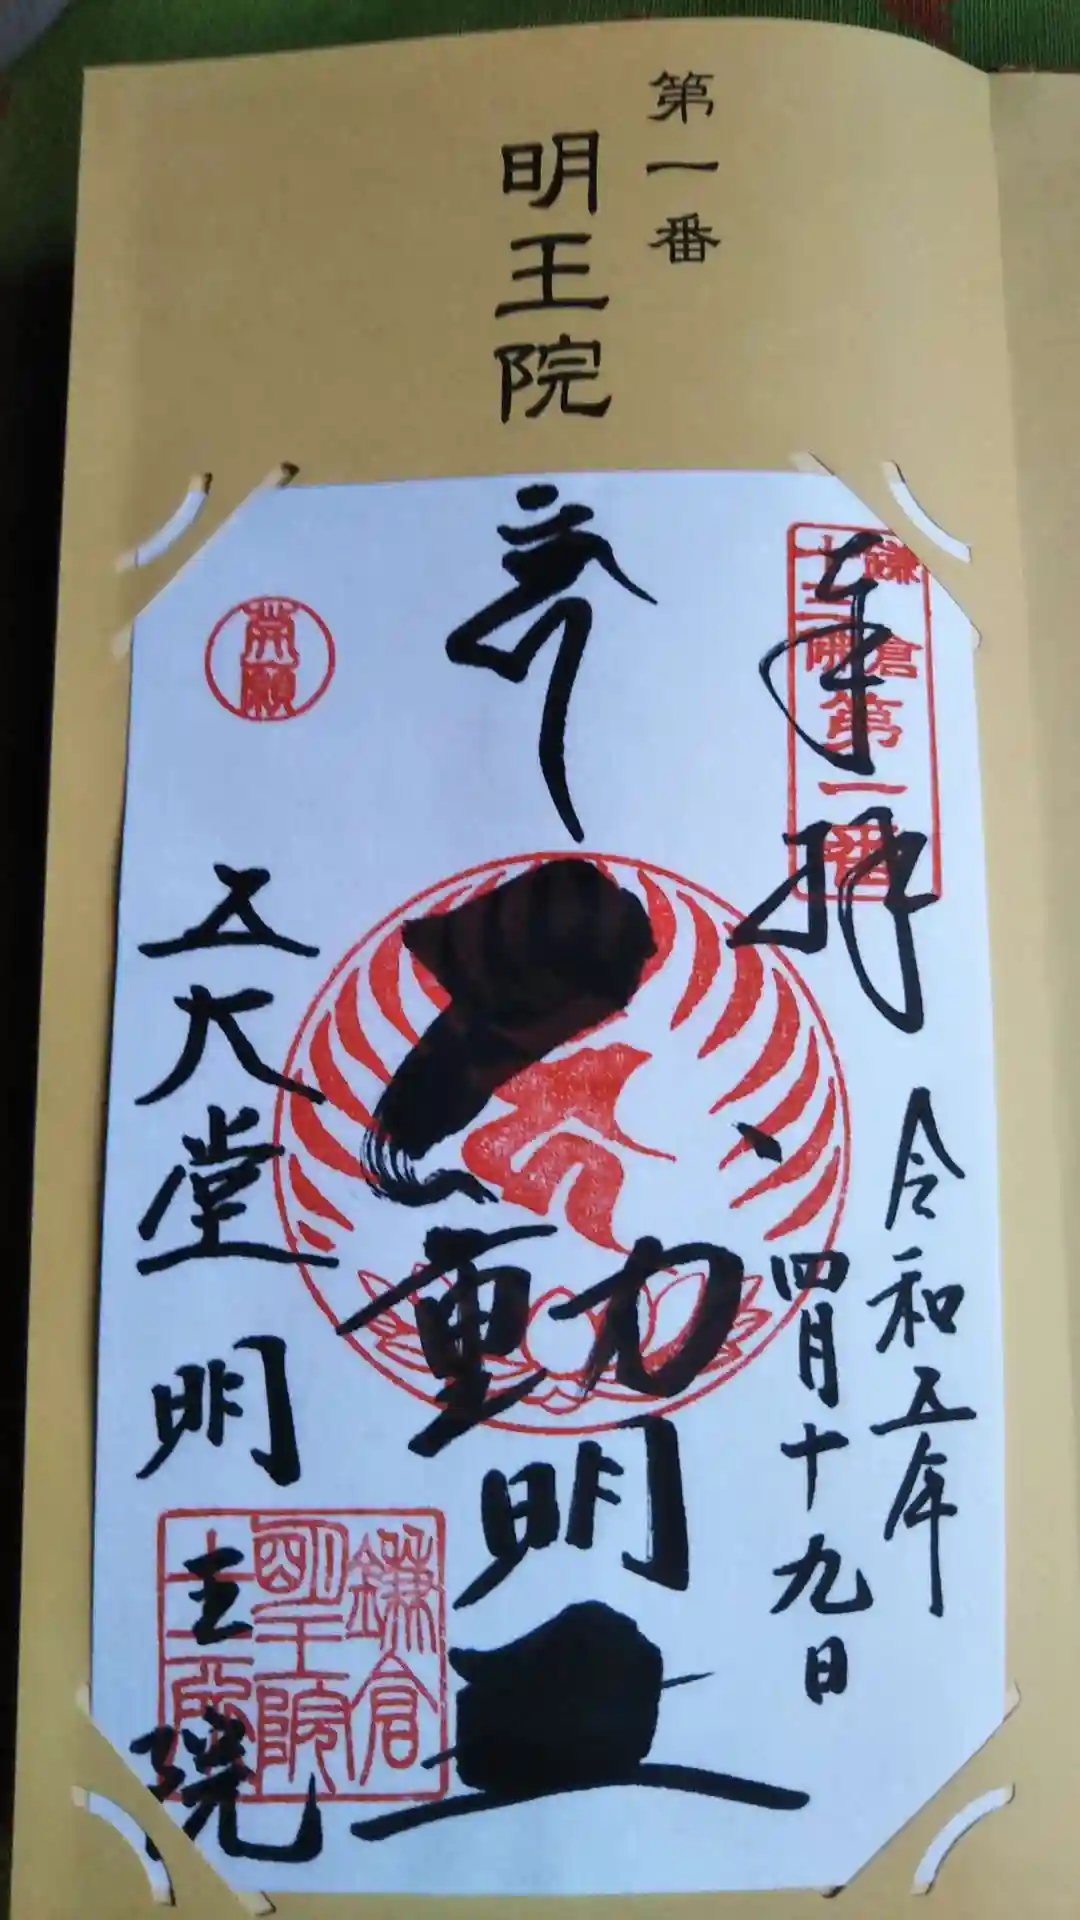 第一番
明王院
奉拝
鎌倉
十三佛
第一番
令和五年
四月十九日
不動明王
発願
五大堂
明王院
鎌倉
明王院